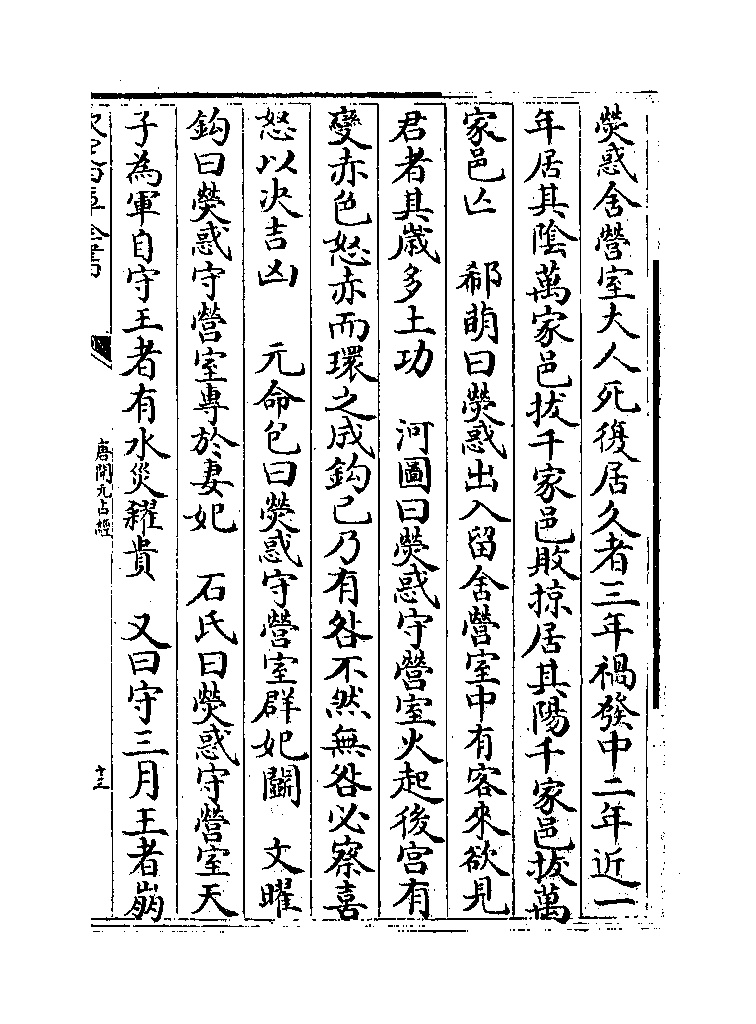 熒惑舍營室大人死復居久者三年禍發中二年近一
年居其陰萬家邑拔千家邑敗掠居其陽千家邑拔萬
家邑亾　郗萌曰熒惑出入留舍營室中有客來欲見
君者其歲多土功　河圖曰熒惑守營室火起後宫有
變赤色怒赤而環之成鈎己乃有咎不然無咎必察喜
怒以决吉凶　元命包曰熒惑守營室群妃鬭　文曜
鈎曰熒惑守營室專於妻妃　石氏曰熒惑守營室天
子為軍自守王者有水災糴貴　又曰守三月王者崩
唐開元占經
十三